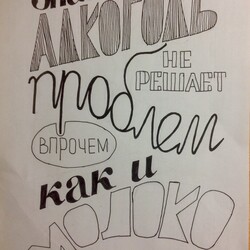 АЛКОГОЛЬ
НЕ
РЕШАЕТ
проблем
ВПРОЧЕМ
как и
МОЛОКО